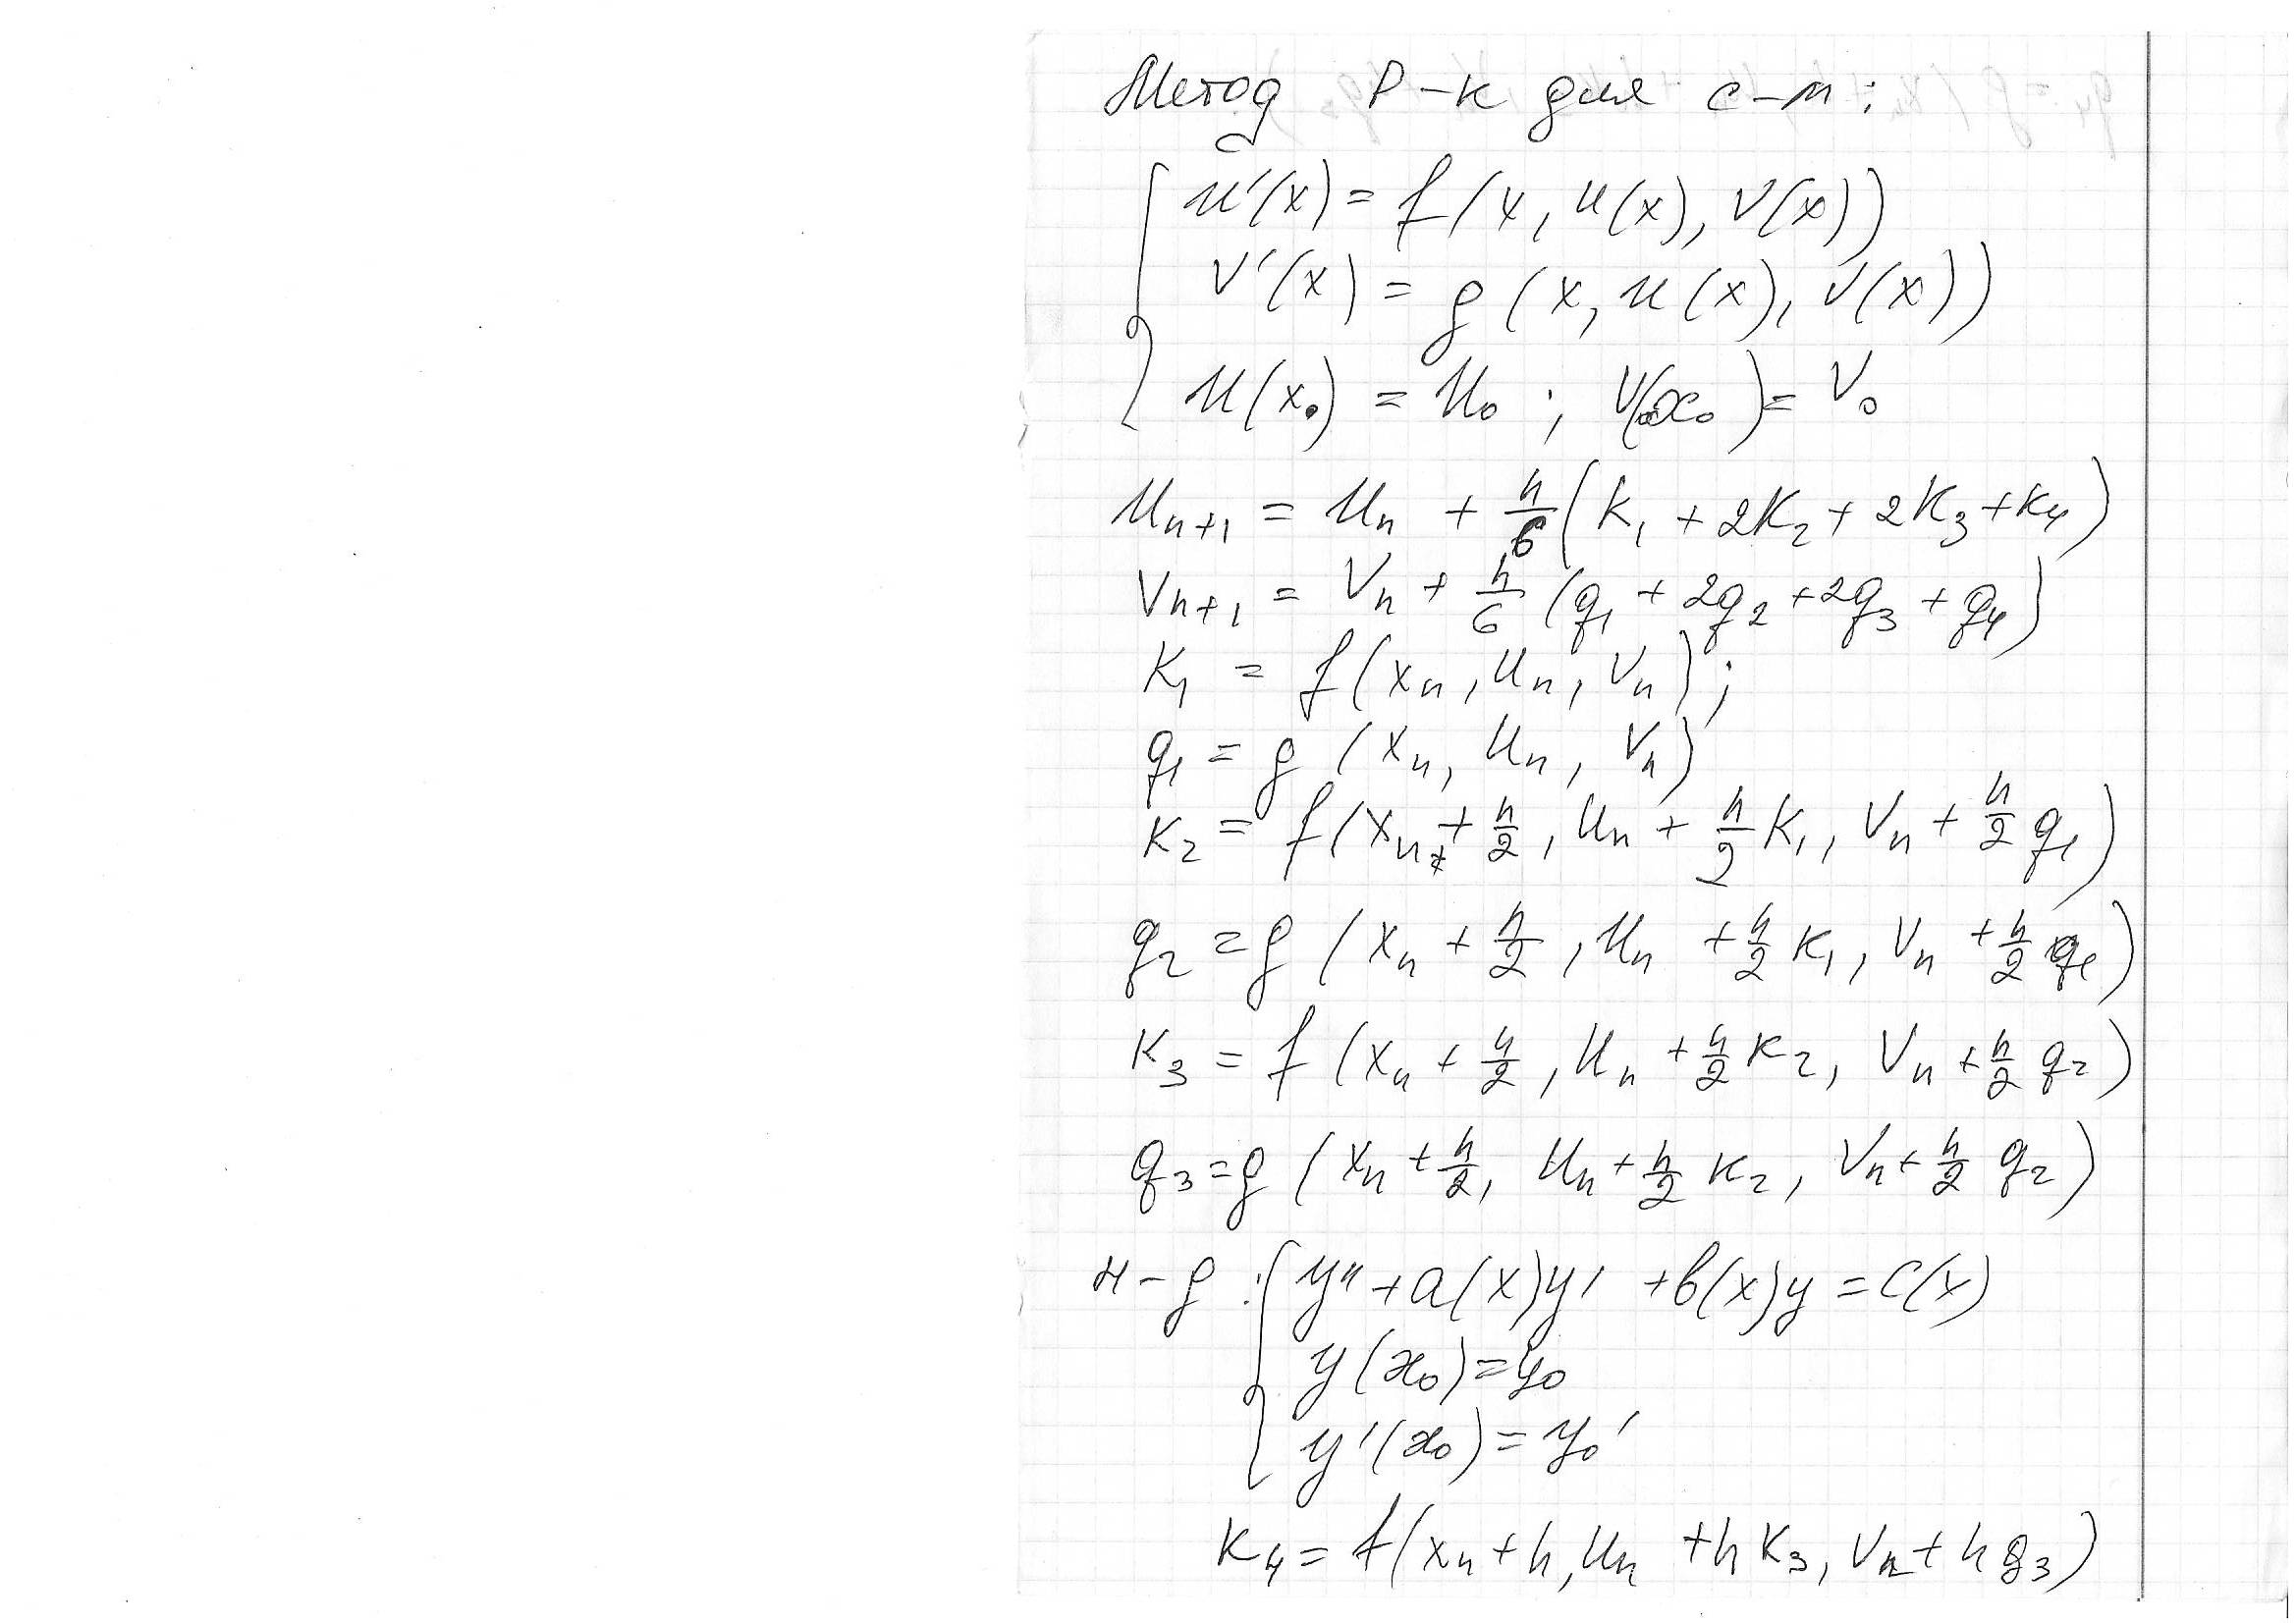 Метод Р-К для с-м:
u'(x) = f(x, u(x), v(x))
v'(x) = g(x, u(x), v(x))
u(x₀) = u₀; v(x₀) = v₀
uₙ₊₁ = uₙ + h/6 (k₁ + 2k₂ + 2k₃ + k₄)
vₙ₊₁ = vₙ + h/6 (q₁ + 2q₂ + 2q₃ + q₄)
k₁ = f(xₙ, uₙ, vₙ);
q₁ = g(xₙ, uₙ, vₙ)
k₂ = f(xₙ + h/2, uₙ + h/2 k₁, vₙ + h/2 q₁)
q₂ = g(xₙ + h/2, uₙ + h/2 k₁, vₙ + h/2 q₁)
k₃ = f(xₙ + h/2, uₙ + h/2 k₂, vₙ + h/2 q₂)
q₃ = g(xₙ + h/2, uₙ + h/2 k₂, vₙ + h/2 q₂)
y'' + a(x)y' + b(x)y = c(x)
y(x₀) = y₀
y'(x₀) = y₀'
k₄ = f(xₙ + h, uₙ + h k₃, vₙ + h q₃)